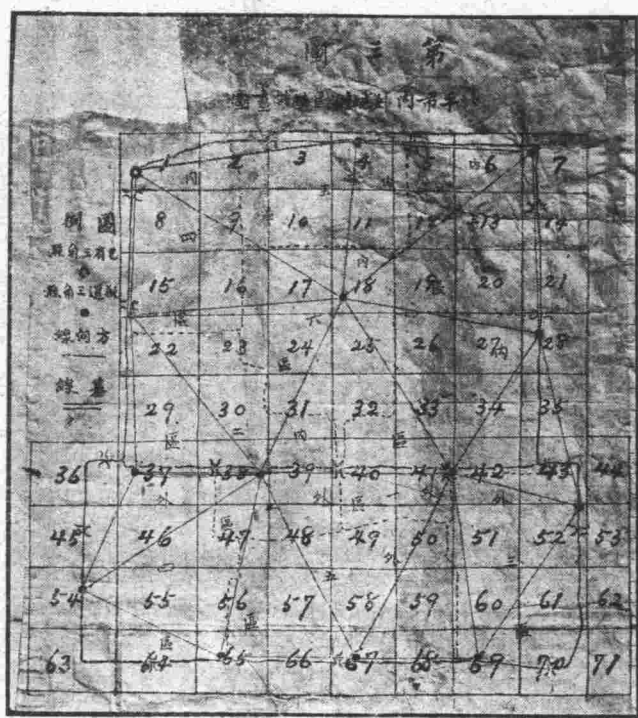 第三圖
圖例
方向線
基線
1 2 3 4 5 內 6 7
內
8 9 10 11 12 13 14
四
內
15 16 17 18 19 20 21
區 六
22 23 24 25 26 27 內 28
區
29 30 31 32 33 34 35
區 二 內 區
36 37 38 39 40 41 42 43 44
外 外 外 外
區 區 一
45 46 47 48 49 50 51 52 53
二 五 外 三
54 55 56 57 58 59 60 61 62
區 區 區
63 64 65 66 67 68 69 70 71